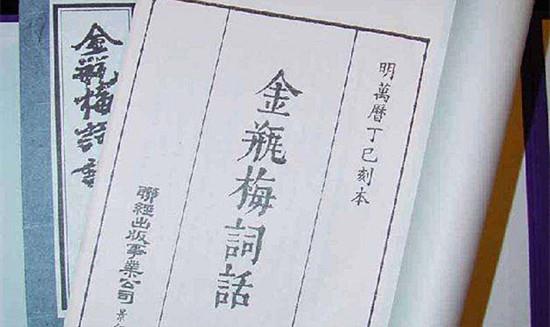 明萬曆丁巳刻本
金瓶梅詞話
聯經出版事業公司 景
金瓶梅詞話